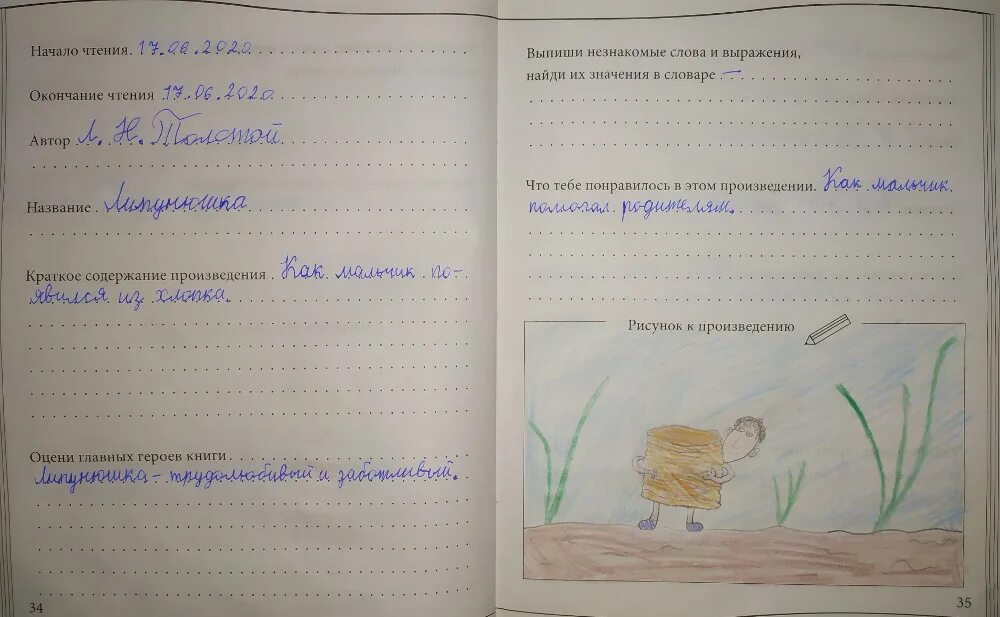 Начало чтения. 17.06.2020
Окончание чтения 17.06.2020
Автор Л. Н. Толстой
Название. Липунюшка
Краткое содержание произведения. Как мальчик по-
явился из хлопка.
Оцени главных героев книги
Липунюшка – трудолюбивый и заботливый.
34
Выпиши незнакомые слова и выражения,
найди их значения в словаре –
Что тебе понравилось в этом произведении. Как мальчик
помогал родителям.
Рисунок к произведению
35